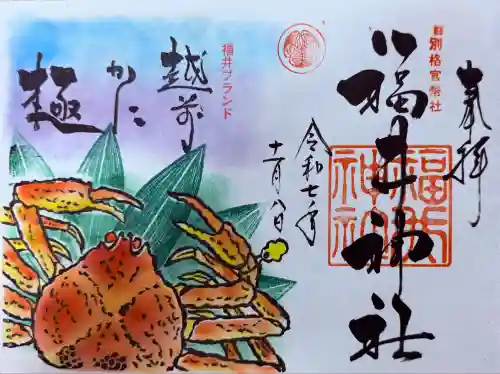 奉拝
別格官幣社
福井神社
福井神社
令和七年
十一月八日
福井ブランド
越前
かに
極